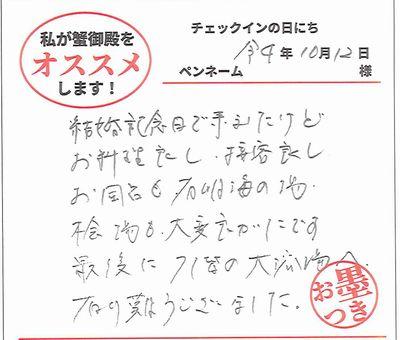 私が蟹御殿を
オススメ
します！
チェックインの日にち
令4年10月12日
ペンネーム 様
結婚記念日で来ましたけど
お料理良し、接客良し
お風呂も有明海の湯、
桧湯も大変良かったです
最後に71階の大浴場へ
有り難うございました。
お墨つき